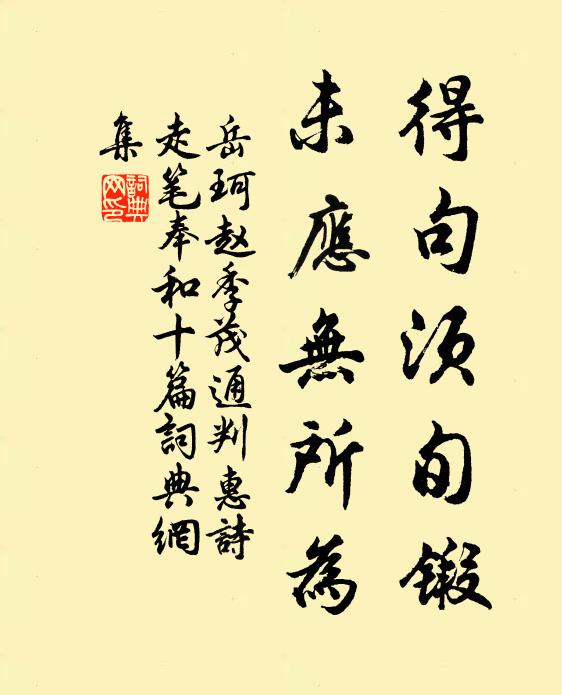 得句须旬鍛
未應無所為
岳珂赵季茂通判惠詩
走笔奉和十篇詞典網
集
詞典網印